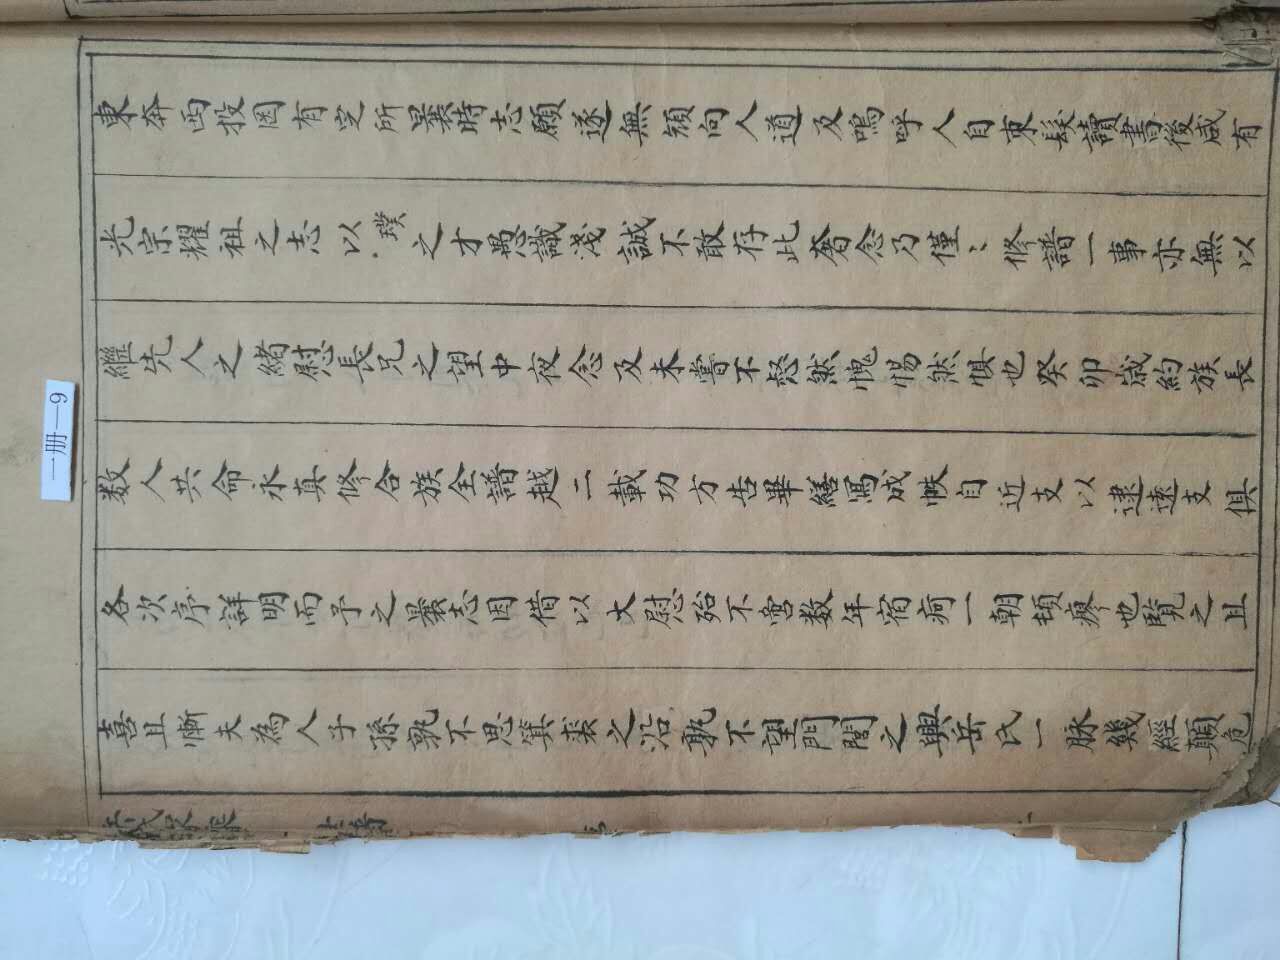 東奔西投罔有定所曩時志願遂無頋向人道及嗚呼人自束髮讀書後咸有
光宗耀祖之志以璞之才愚識淺誠不敢存此奢念乃僅〻修譜一事亦無以
繼先人之緒慰長兄之望中夜念及未嘗不怒然愧惕然惧也癸卯歲約族長
数人共命永真修合族全譜越二載功方告畢繕寫成帙自近支以逮遠支俱
各次序詳明而予之曩志因借以大慰殆不啻数年宿疴一朝頓瘳也覧之且
喜且慚夫為人子孫孰不思箕裘之沿孰不望門閭之興岳氏一脉幾經顛危
一册—9